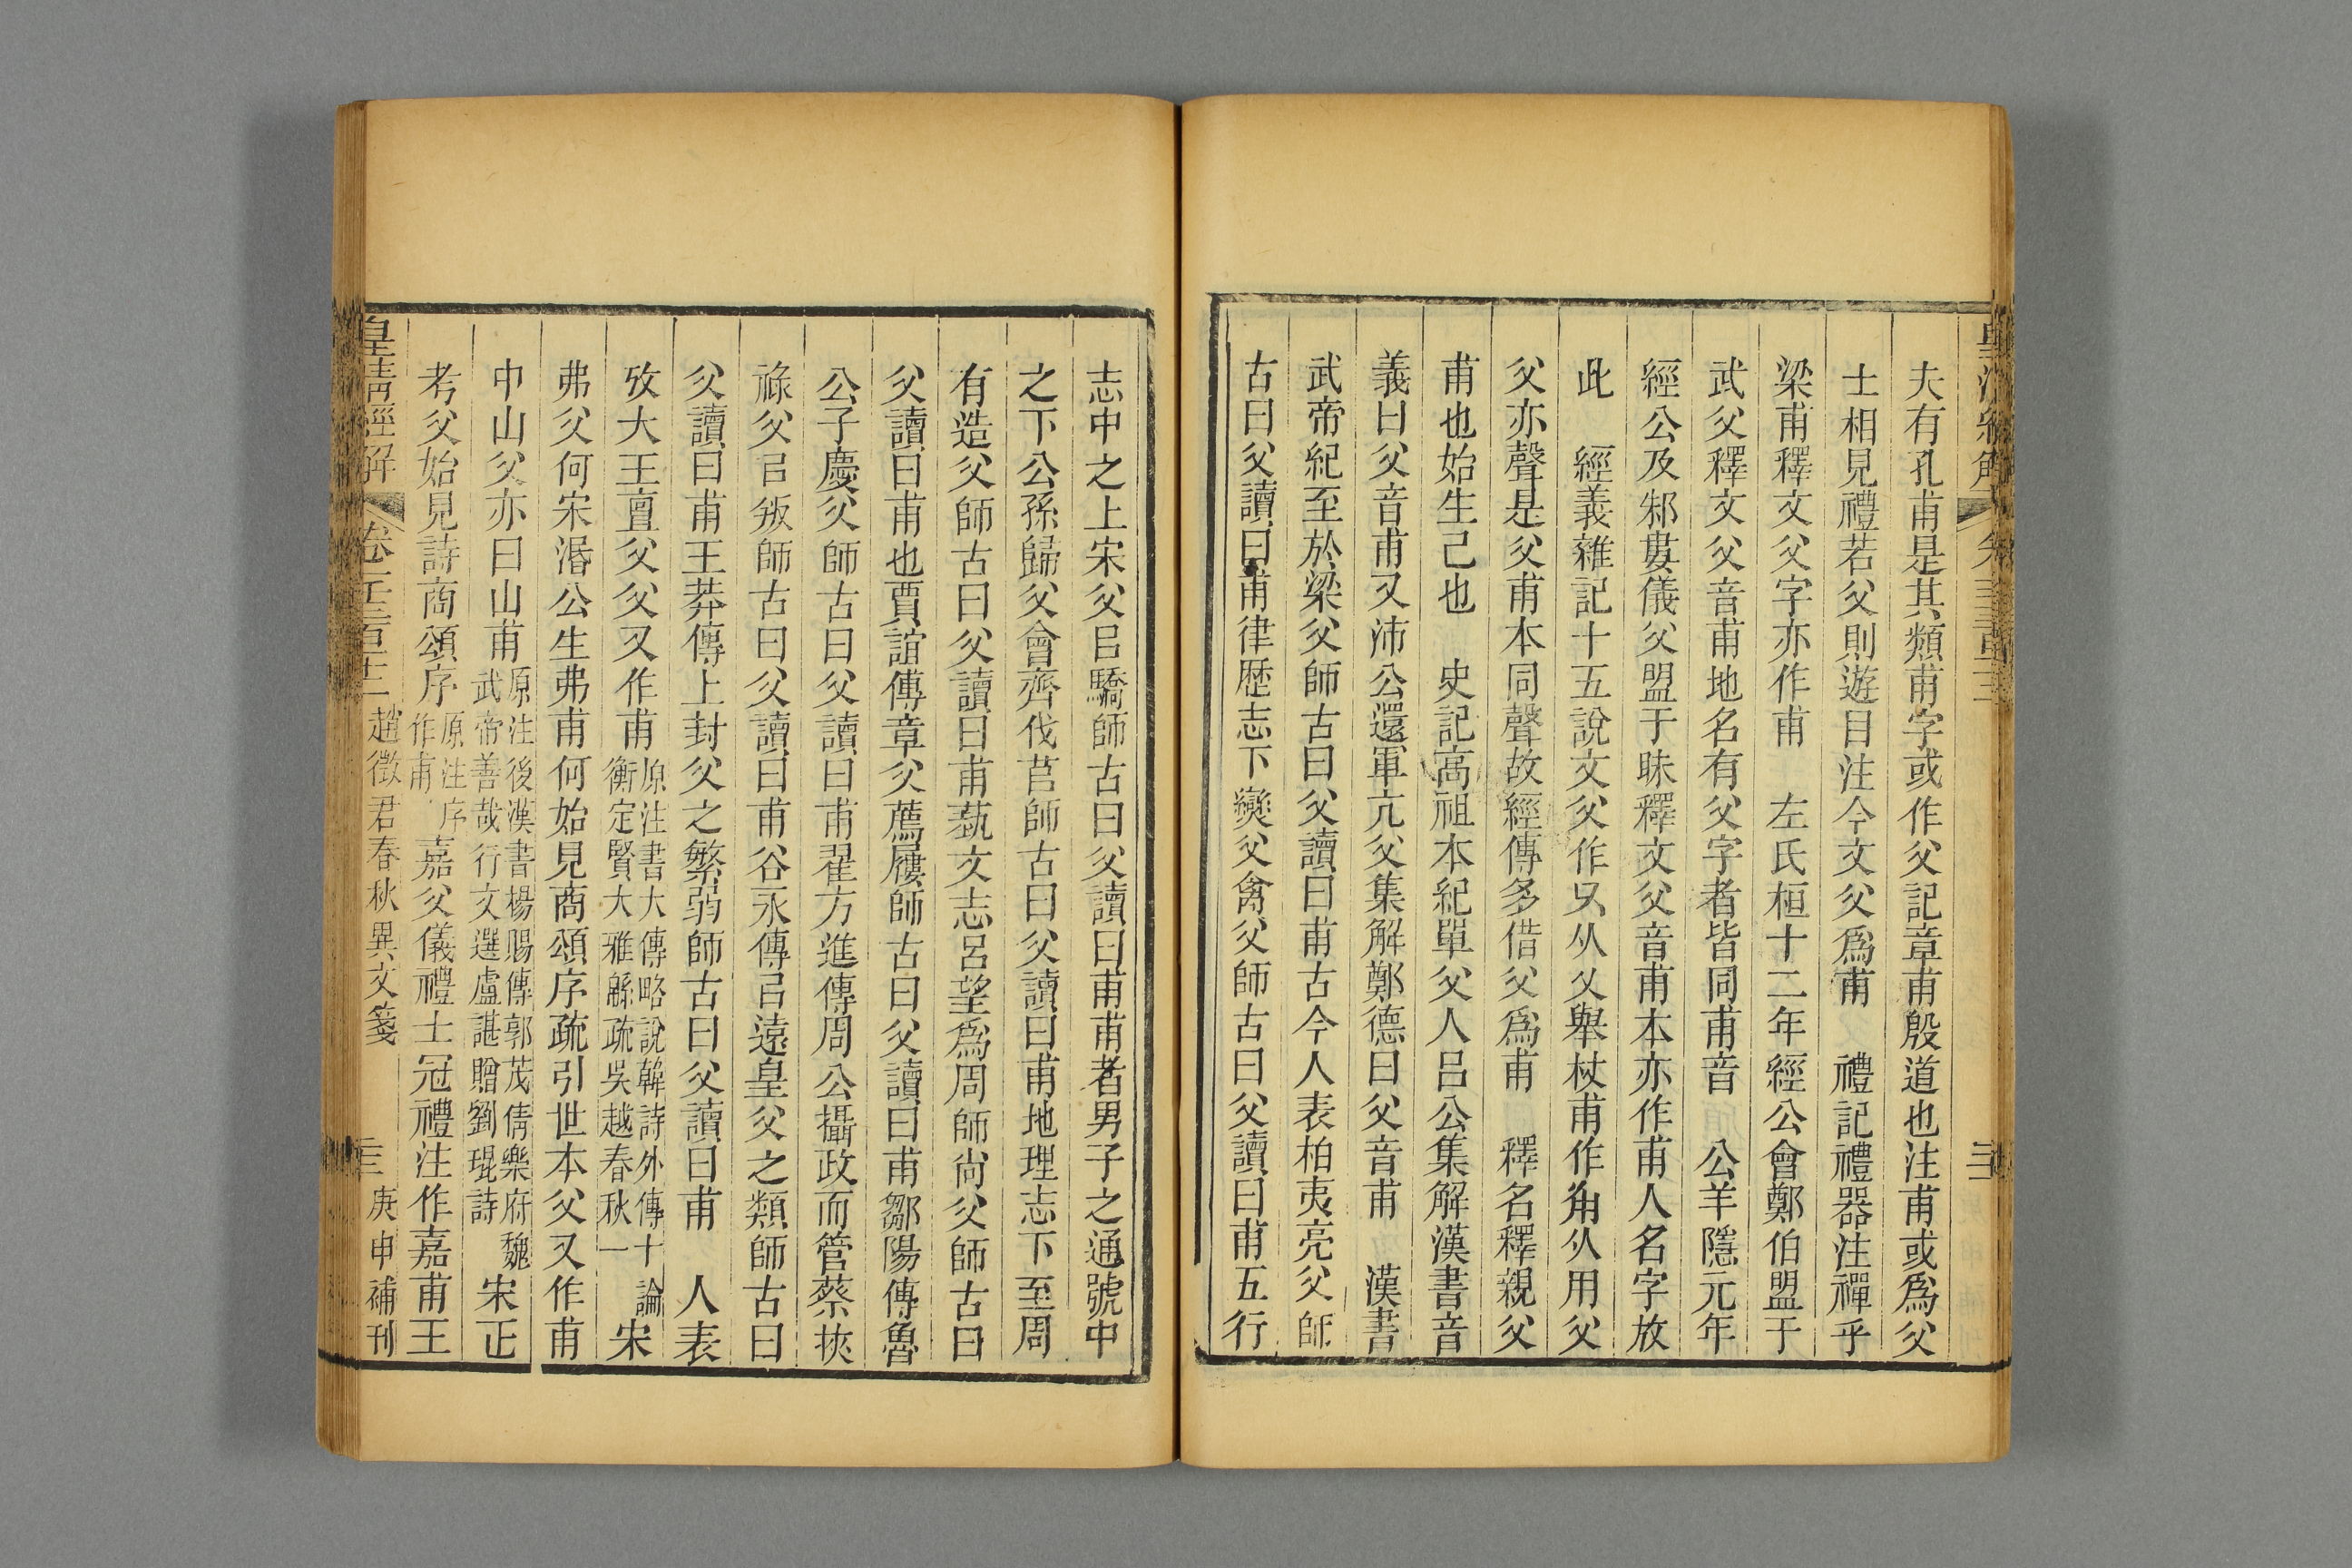 夫有孔甫是其類甫字或作父記章甫殷道也注甫或爲父
士相見禮若父則遊目注今文父爲甫　禮記禮器注禪乎
梁甫釋文父字亦作甫　左氏桓十二年經公會鄭伯盟于
武父釋文父音甫地名有父字者皆同甫音　公羊隱元年
經公及邾婁儀父盟于眛釋文父音甫本亦作甫人名字放
此　經義雜記十五說文父作𠬛从又舉杖甫作𤰃从用父
父亦聲是父甫本同聲故經傳多借父爲甫　釋名釋親父
甫也始生己也　史記高祖本紀單父人呂公集解漢書音
義曰父音甫又沛公還軍亢父集解鄭德曰父音甫　漢書
武帝紀至於梁父師古曰父讀曰甫古今人表柏夷亮父師
古曰父讀曰甫律歷志下燮父禽父師古曰父讀曰甫五行
志中之上宋父㠯驕師古曰父讀曰甫甫者男子之通號中
之下公孫歸父會齊伐莒師古曰父讀曰甫地理志下至周
有造父師古曰父讀曰甫蓺文志呂望爲周師尚父師古曰
父讀曰甫也賈誼傳章父薦屨師古曰父讀曰甫鄒陽傳魯
公子慶父師古曰父讀曰甫翟方進傳周公攝政而管蔡挾
祿父㠯叛師古曰父讀曰甫谷永傳㠯遠皇父之類師古曰
父讀曰甫王莽傳上封父之繁弱師古曰父讀曰甫　人表
攷大王亶父父又作甫原注書大傳略說韓詩外傳十論衡定賢大雅緜疏吳越春秋一宋
弗父何宋湣公生弗甫何始見商頌序疏引世本父又作甫
中山父亦曰山甫原注後漢書楊賜傳郭茂倩樂府魏武帝善哉行文選盧諶贈劉琨詩宋正
考父始見詩商頌序原注序作甫嘉父儀禮士冠禮注作嘉甫王
皇清經解　卷　趙徵君春秋異文箋　三　庚申補刊